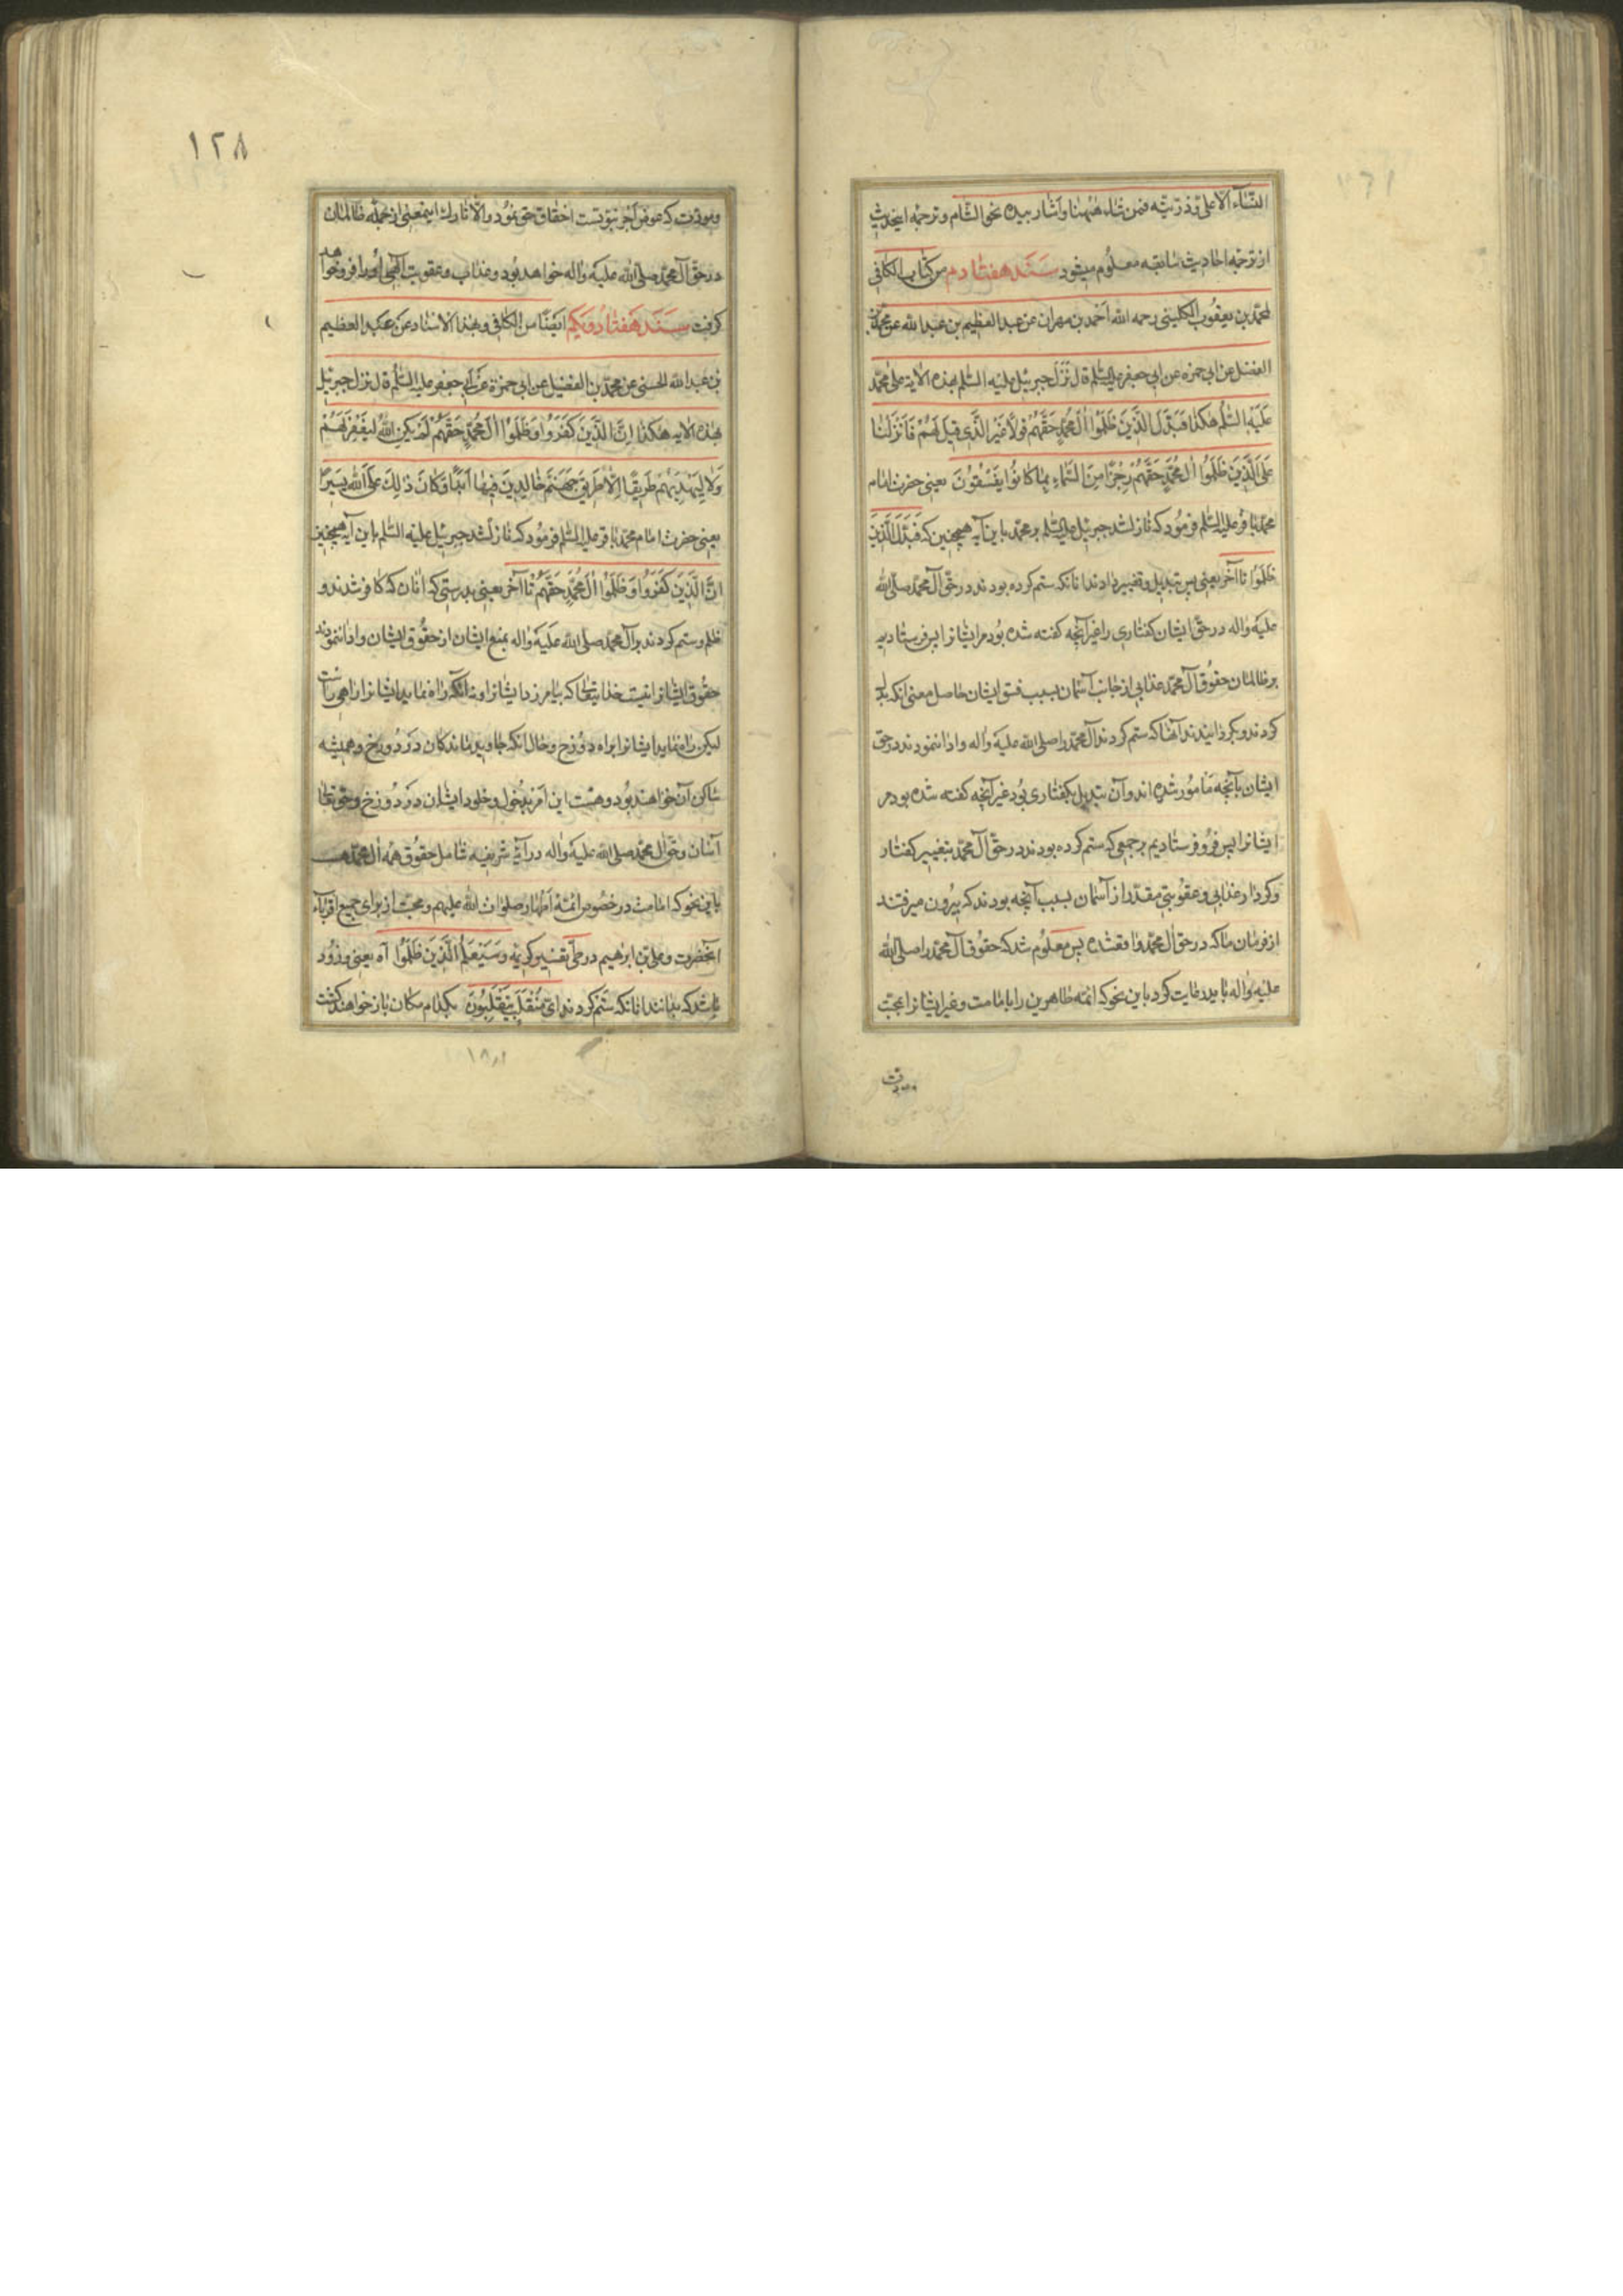 الثناء الا على و ذريته فمن شاء هٰهنا و اشار بيده نحو الشام و ترجمه اينحديث
از ترجمه احاديث سابقه معلوم ميشود سند هفتادم من كتاب الكافى
لمحمد بن يعقوب الكلينى رحمه الله احمد بن مهران عن عبد العظيم بن عبد الله عن محمد بن
الفضيل عن ابى حمزه عن ابى جعفر عليه السلم قال نزل جبرئيل عليه السلم بهذه الاية على محمد
عليه السلم هكذا فبدل الذين ظلموا ال محمد حقهم قولا غير الذى قيل لهم فانزلنا
على الذين ظلموا ال محمد حقهم رجزا من السماء بما كانوا يفسقون يعنى حضرت امام
محمد باقر عليه السلم فرمود كه نازل شد جبرئيل عليه السلم بر محمد باين آيه همچنين كه فبدل الذين
ظلموا تا آخر يعنى پس تبديل و تغيير دادند انانكه ستم كرده بودند در حق آل محمد صلى الله
عليه و اله در حق ايشان گفتارى را غير آنچه گفته شده بود مر ايشانرا پس فرستاديم
بر ظالمان حقوق آل محمد عذابى از جانب آسمان بسبب فسق ايشان حاصل معنى انكه بدل
كردند و گردانيدند آنها كه ستم كردند آل محمد را صلى الله عليه و اله و ادا ننمودند در حق
ايشان بآنچه مامور شده اند و آن تبديل بگفتارى بود غير آنچه گفته شده بود مر
ايشانرا پس فرو فرستاديم بر جمعى كه ستم كرده بودند در حق آل محمد بتغيير گفتار
و كردار عذابى و عقوبتى مقدر از آسمان بسبب آنچه بودند كه بيرون ميرفتند
از فرمان ما كه در حق ال محمد واقعشده پس معلوم شد كه حقوق آل محمد را صلى الله
عليه و اله بايد رعايت كرد باين نحو كه ائمه طاهرين را بامامت و غير ايشانرا بمحبت
و مودت
١٢٨
و مودت كه عوض اجر نبوتست احقاق حق نمود و الا تارك اينمعنى از جمله ظالمان
در حق آل محمد صلى الله عليه و اله خواهد بود و عذاب و عقوبت الهى او را فرو خواهد
گرفت سند هفتاد و يكم ايضا من الكافى و بهذا الاسناد عن عبد العظيم
بن عبد الله الحسنى عن محمد بن الفضيل عن ابى حمزة عن ابى جعفر عليه السلم قال نزل جبرئيل
بهذه الايه هكذا ان الذين كفروا و ظلموا ال محمد حقهم لم يكن الله ليغفر لهم
و لا ليهديهم طريقا الا طريق جهنم خالدين فيها ابدا و كان ذلك على الله يسيرا
يعنى حضرت امام محمد باقر عليه السلم فرمود كه نازلشد جبرئيل عليه السلم باين آيه همچنين
ان الذين كفروا و ظلموا ال محمد حقهم تا آخر يعنى بدرستى كه انان كه كافر شدند و
ظلم و ستم كردند بر آل محمد صلى الله عليه و اله بمنع ايشان از حقوق ايشان و ادا ننمودند
حقوق ايشانرا نيست خدايتعالى كه بيامرزد ايشانرا و نه انكه راه نمايد ايشانرا راهى راست
ليكن راه نمايد ايشانرا براه دوزخ و حال انكه جاويد ماندگان در دوزخ و هميشه
ساكن آن خواهند بود و هست اين امر بدخول و خلود ايشان در دوزخ بر حق تعالى
آسان و حق ال محمد صلى الله عليه و اله در آيه شريفه شامل حقوق همه ال محمد هست
باين نحو كه امامت در خصوص ائمه اطهار صلوات الله عليهم و محبت از براى جميع اقرباء
آنحضرت و على بن ابرهيم در طى تفسير كريمه و سيعلم الذين ظلموا آه يعنى و زود
باشد كه بدانند انانكه ستم كردند اى منقلب ينقلبون بكدام مكان باز خواهند گشت